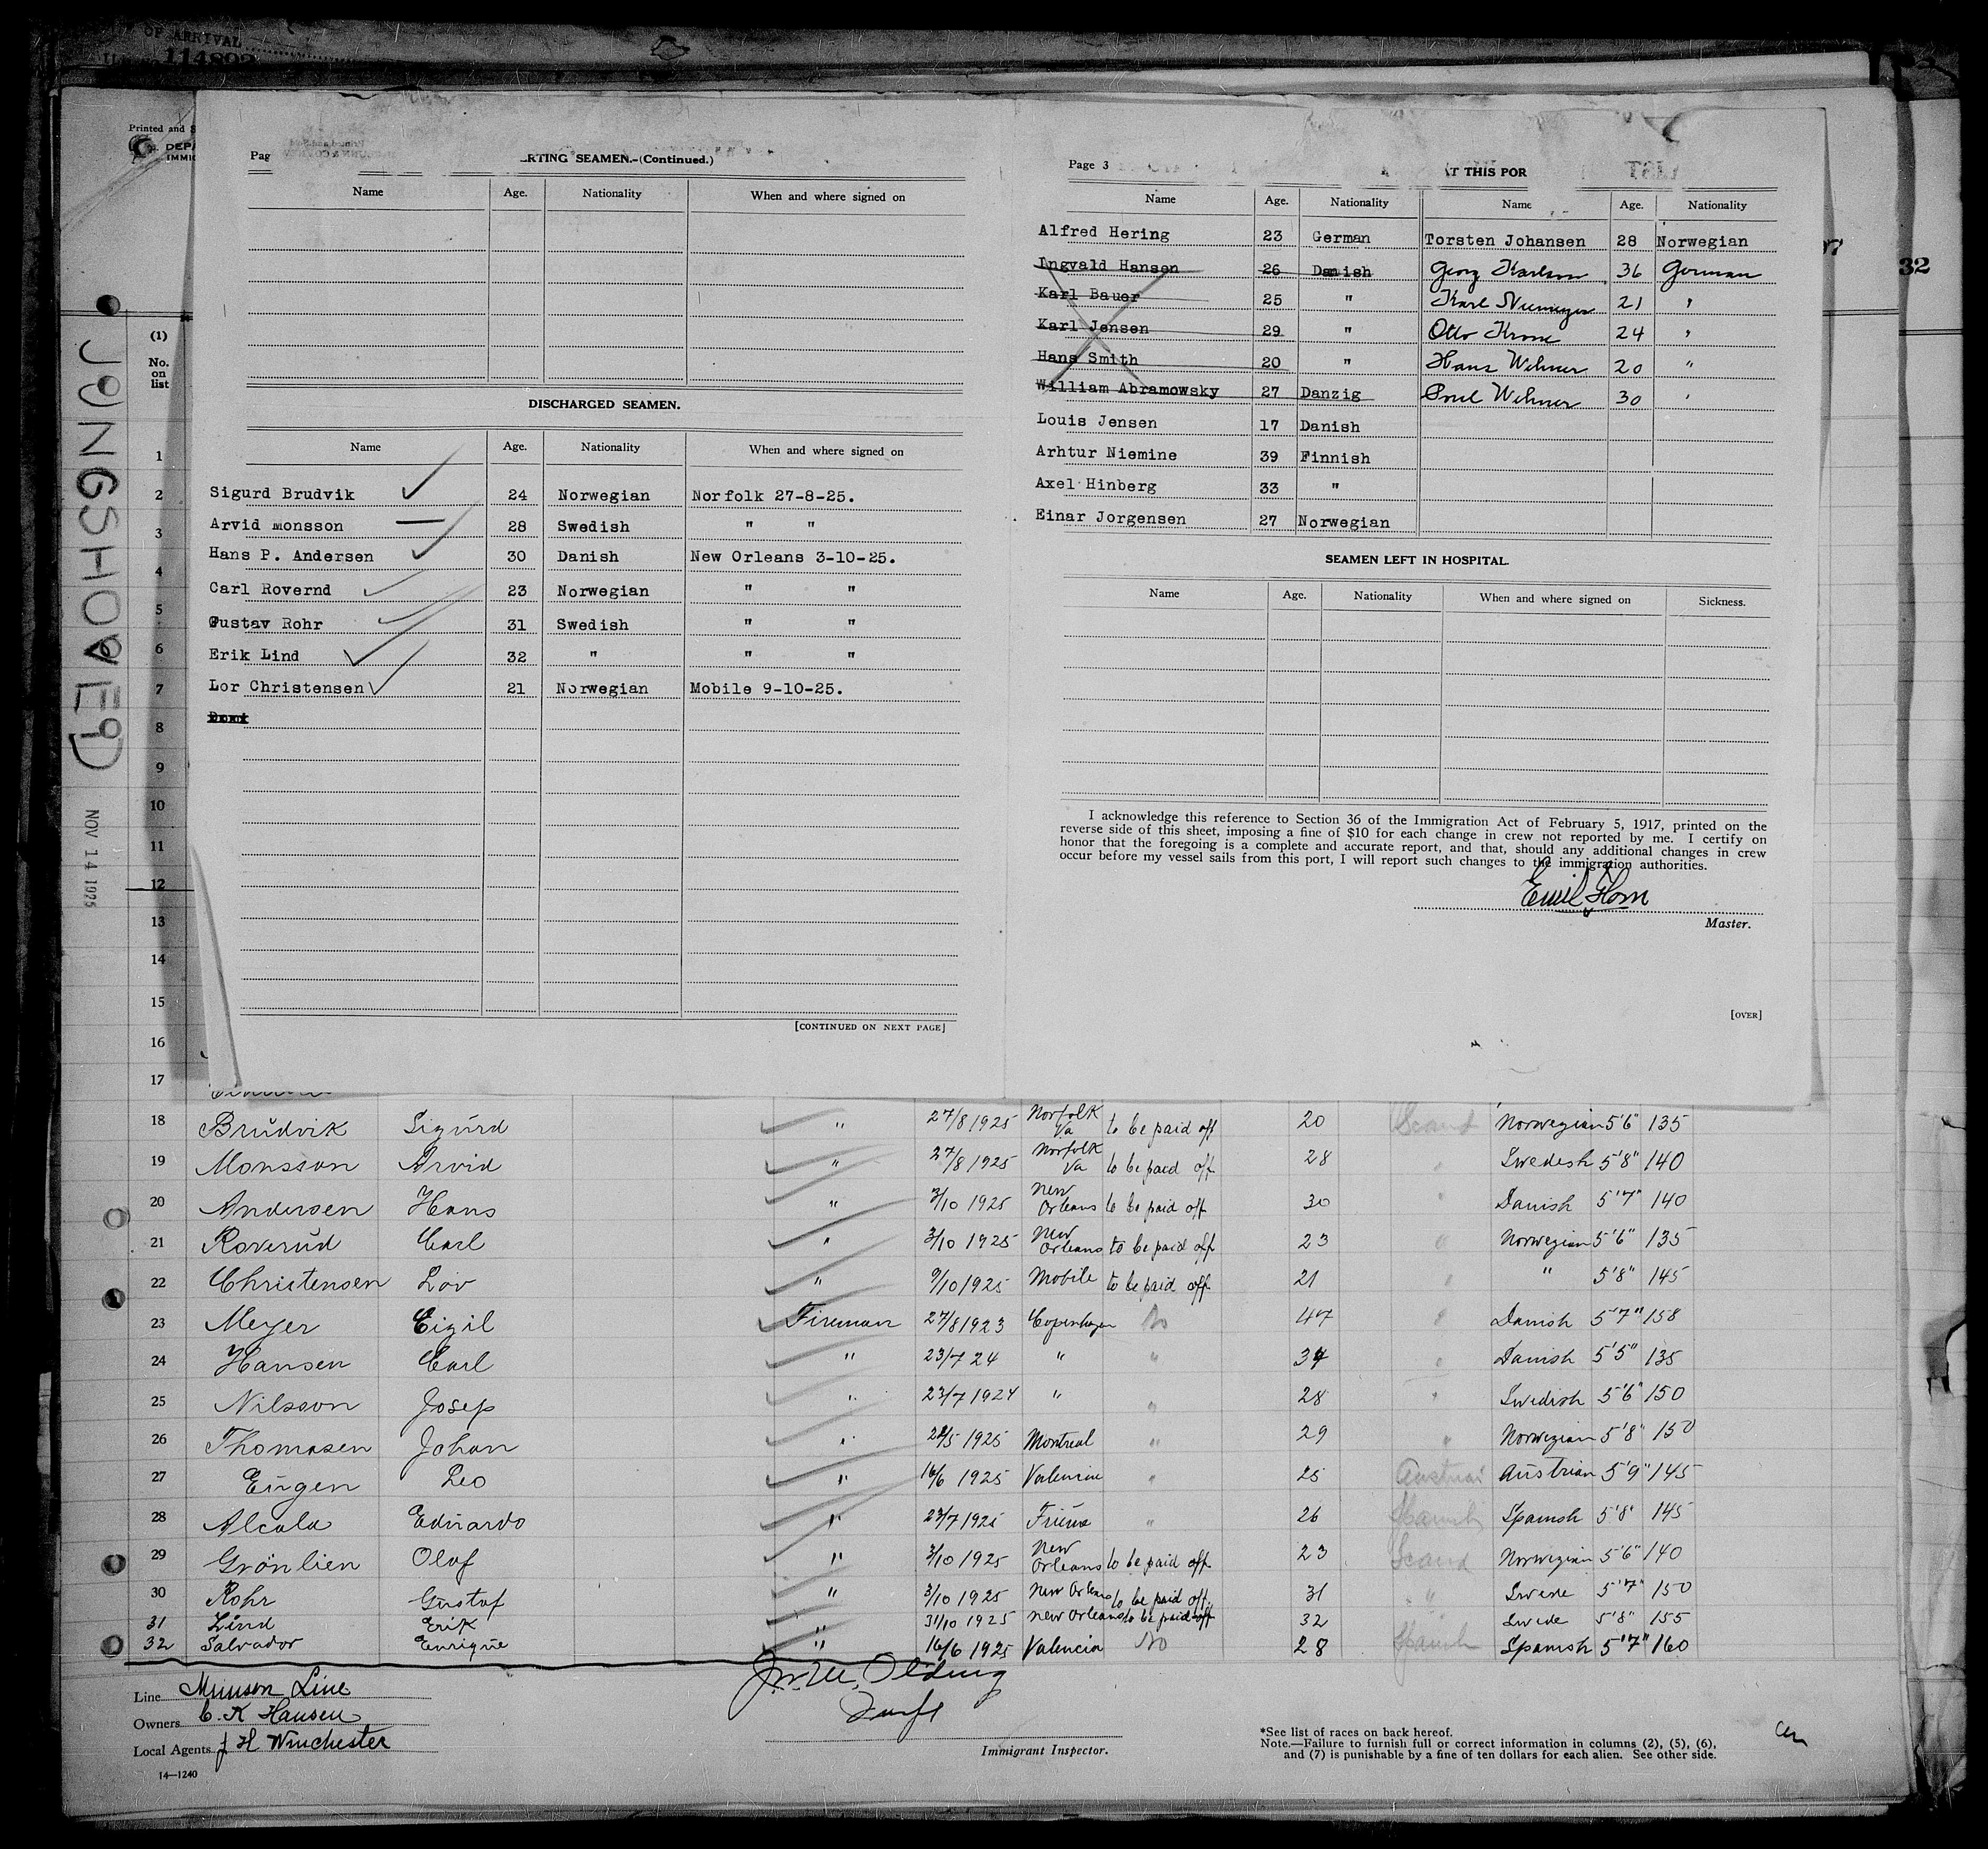 OF ARRIVAL
114802
Printed and S
DEPA
IMMIG
(1)
No.
on
list
JUNGSHOVED
NOV 14 1925
32
Pag RTING SEAMEN.-(Continued.)
Name Age. Nationality When and where signed on
DISCHARGED SEAMEN.
Name Age. Nationality When and where signed on
Sigurd Brudvik 24 Norwegian Norfolk 27-8-25.
Arvid monsson 28 Swedish " "
Hans P. Andersen 30 Danish New Orleans 3-10-25.
Carl Rovernd 23 Norwegian " "
Gustav Rohr 31 Swedish " "
Erik Lind 32 " " "
Lor Christensen 21 Norwegian Mobile 9-10-25.
[CONTINUED ON NEXT PAGE]
Page 3 T THIS POR
Name Age. Nationality Name Age. Nationality
Alfred Hering 23 German Torsten Johansen 28 Norwegian
Ingvald Hansen 26 Danish Georg Karlson 36 German
Karl Bauer 25 " Karl Niemeyer 21 "
Karl Jensen 29 " Otto Krone 24 "
Hans Smith 20 " Hans Wehner 20 "
William Abramowsky 27 Danzig Paul Wehner 30 "
Louis Jensen 17 Danish
Arhtur Niemine 39 Finnish
Axel Hinberg 33 "
Einar Jorgensen 27 Norwegian
SEAMEN LEFT IN HOSPITAL.
Name Age. Nationality When and where signed on Sickness.
I acknowledge this reference to Section 36 of the Immigration Act of February 5, 1917, printed on the
reverse side of this sheet, imposing a fine of $10 for each change in crew not reported by me. I certify on
honor that the foregoing is a complete and accurate report, and that, should any additional changes in crew
occur before my vessel sails from this port, I will report such changes to the immigration authorities.
Emil Horn
Master.
[OVER]
1
2
3
4
5
6
7
8
9
10
11
12
13
14
15
16
17
18 Brudvik Sigurd " 27/8 1925 Norfolk Va to be paid off 20 Scand Norwegian 5'6" 135
19 Monsson Arvid " 27/8 1925 Norfolk Va to be paid off 28 " Swedish 5'8" 140
20 Andersen Hans " 3/10 1925 New Orleans to be paid off 30 " Danish 5'7" 140
21 Roverud Carl " 3/10 1925 New Orleans to be paid off 23 " Norwegian 5'6" 135
22 Christensen Lov " 9/10 1925 Mobile to be paid off 21 " " 5'8" 145
23 Meyer Eigil Fireman 27/8 1923 Copenhagen No 47 " Danish 5'7" 158
24 Hansen Carl " 23/7 24 " " 34 " Danish 5'5" 135
25 Nilsson Josep " 23/7 1924 " " 28 " Swedish 5'6" 150
26 Thomasen Johan " /5 1925 Montreal " 29 " Norwegian 5'8" 150
27 Eugen Leo " 16/6 1925 Valencia " 25 Austrian 5'9" 145
28 Alcala Eduardo " 23/7 1925 " 26 Spanish Spanish 5'8" 145
29 Grönlien Olof " 3/10 1925 New Orleans to be paid off 23 Scand Norwegian 5'6" 140
30 Rohr Gustof " 3/10 1925 New Orleans to be paid off. 31 " Swede 5'7" 150
31 Lind Erik " 31/10 1925 New Orleans to be paid off 32 Swede 5'8" 155
32 Salvador Enrique " 16/6 1925 Valencia No 28 Spanish Spanish 5'7" 160
Line Munson Line
Owners C. K Hansen
Local Agents J H Winchester
14—1240
Immigrant Inspector.
*See list of races on back hereof.
Note.—Failure to furnish full or correct information in columns (2), (5), (6),
and (7) is punishable by a fine of ten dollars for each alien. See other side.